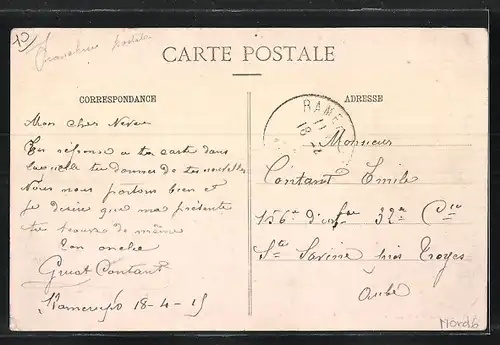 Franchise postale
CARTE POSTALE
CORRESPONDANCE
ADRESSE
RAME
18
Mon cher Neveu
En réponse a ta carte dans
laquelle tu donnes de tes nouvelles
Nous nous portons bien et
Je desire que ma présente
te trouve de même
Ton oncle
Contant
18-4-15
Monsieur
Contant Emile
156e d'inf 32e Cie
Ste Savine près Troyes
Aube
Nord